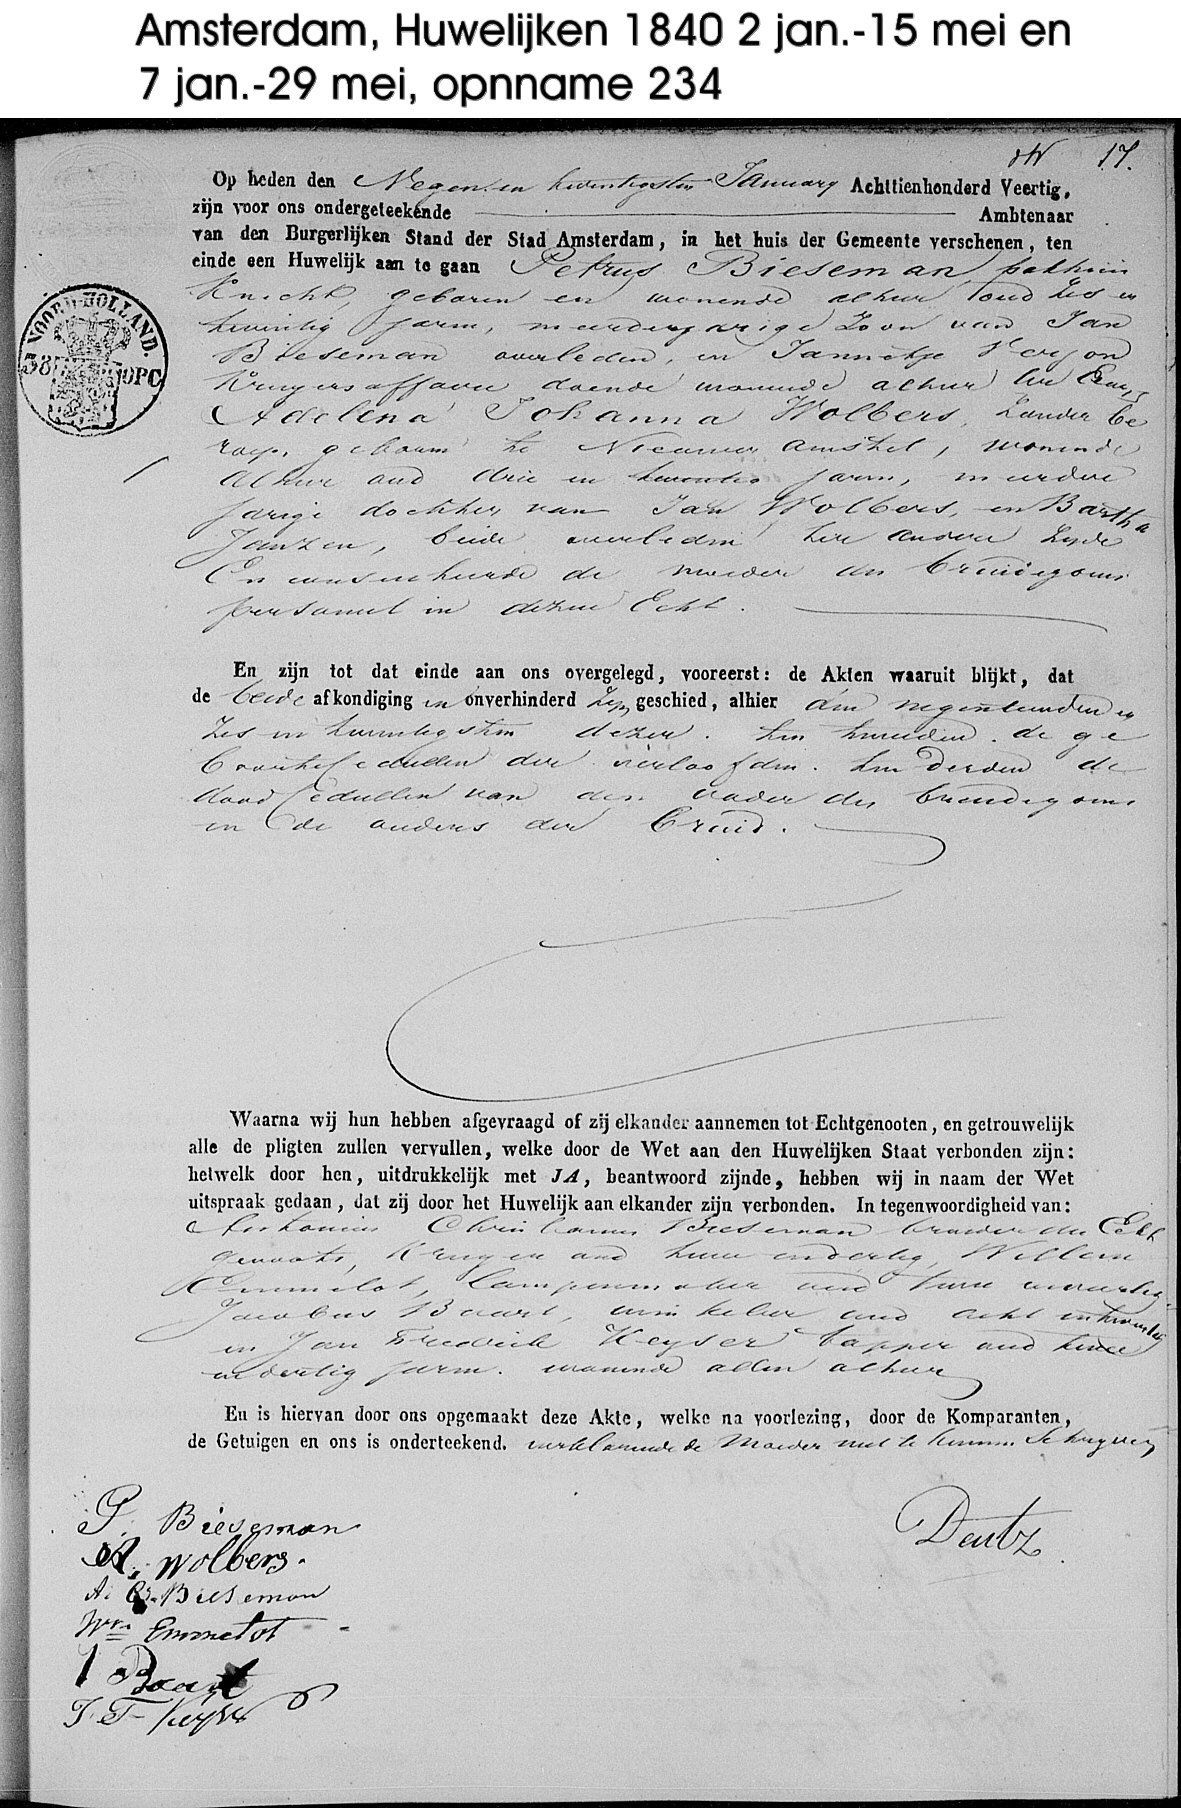 Amsterdam, Huwelijken 1840 2 jan.-15 mei en
7 jan.-29 mei, opnname 234
17.
Op heden den Negen en twintigsten January Achttienhonderd Veertig,
zijn voor ons ondergeteekende Ambtenaar
van den Burgerlijken Stand der Stad Amsterdam, in het huis der Gemeente verschenen, ten
einde een Huwelijk aan te gaan Petrus Bieseman pakhuis
Knecht, geboren en wonende alhier oud Zes en
twintig jaren, meerderjarige Zoon van Jan
Bieseman overleden, en Jannetje
affaire doende wonende alhier ter Eenre,
Adelina Johanna Wolbers, Zonder be
roep, geboren te Nieuwer Amstel, wonende
Alhier oud drie en twintig jaren, meerder
jarige dochter van Jan Wolbers, en Bartha
Janzen, beide overleden ter andere Zyde
En consenteerde de moeder des bruidegoms
personeel in dezen Echt.
VOORD-HOLLAND.
38 OPC
En zijn tot dat einde aan ons overgelegd, vooreerst: de Akten waaruit blijkt, dat
de beide afkondigingen onverhinderd Zijn geschied, alhier den negentienden en
Zes en twintigsten dezer. ten tweeden. de ge
boortecedullen der verloofden. ten derden de
doodcedullen van den vader des bruidegoms
en de ouders der bruid.
Waarna wij hun hebben afgevraagd of zij elkander aannemen tot Echtgenooten, en getrouwelijk
alle de pligten zullen vervullen, welke door de Wet aan den Huwelijken Staat verbonden zijn:
hetwelk door hen, uitdrukkelijk met JA, beantwoord zijnde, hebben wij in naam der Wet
uitspraak gedaan, dat zij door het Huwelijk aan elkander zijn verbonden. In tegenwoordigheid van:
Antonius Christianus Bieseman broeder des Echt
genoots, oud twee en dertig, Willem
Emmelot, Lampenmaker oud
Jacobus Baart, winkelier oud acht en twintig
en Jan Fredrik Keyser tapper oud twee
en dertig jaren. wonende allen alhier
En is hiervan door ons opgemaakt deze Akte, welke na voorlezing, door de Komparanten,
de Getuigen en ons is onderteekend. verklarende de Moeder niet te kunnen Schryven
P. Bieseman
A. Wolbers.
A. C. Bieseman
Wm Emmelot
J Baart
J. F. Keyser
Deutz